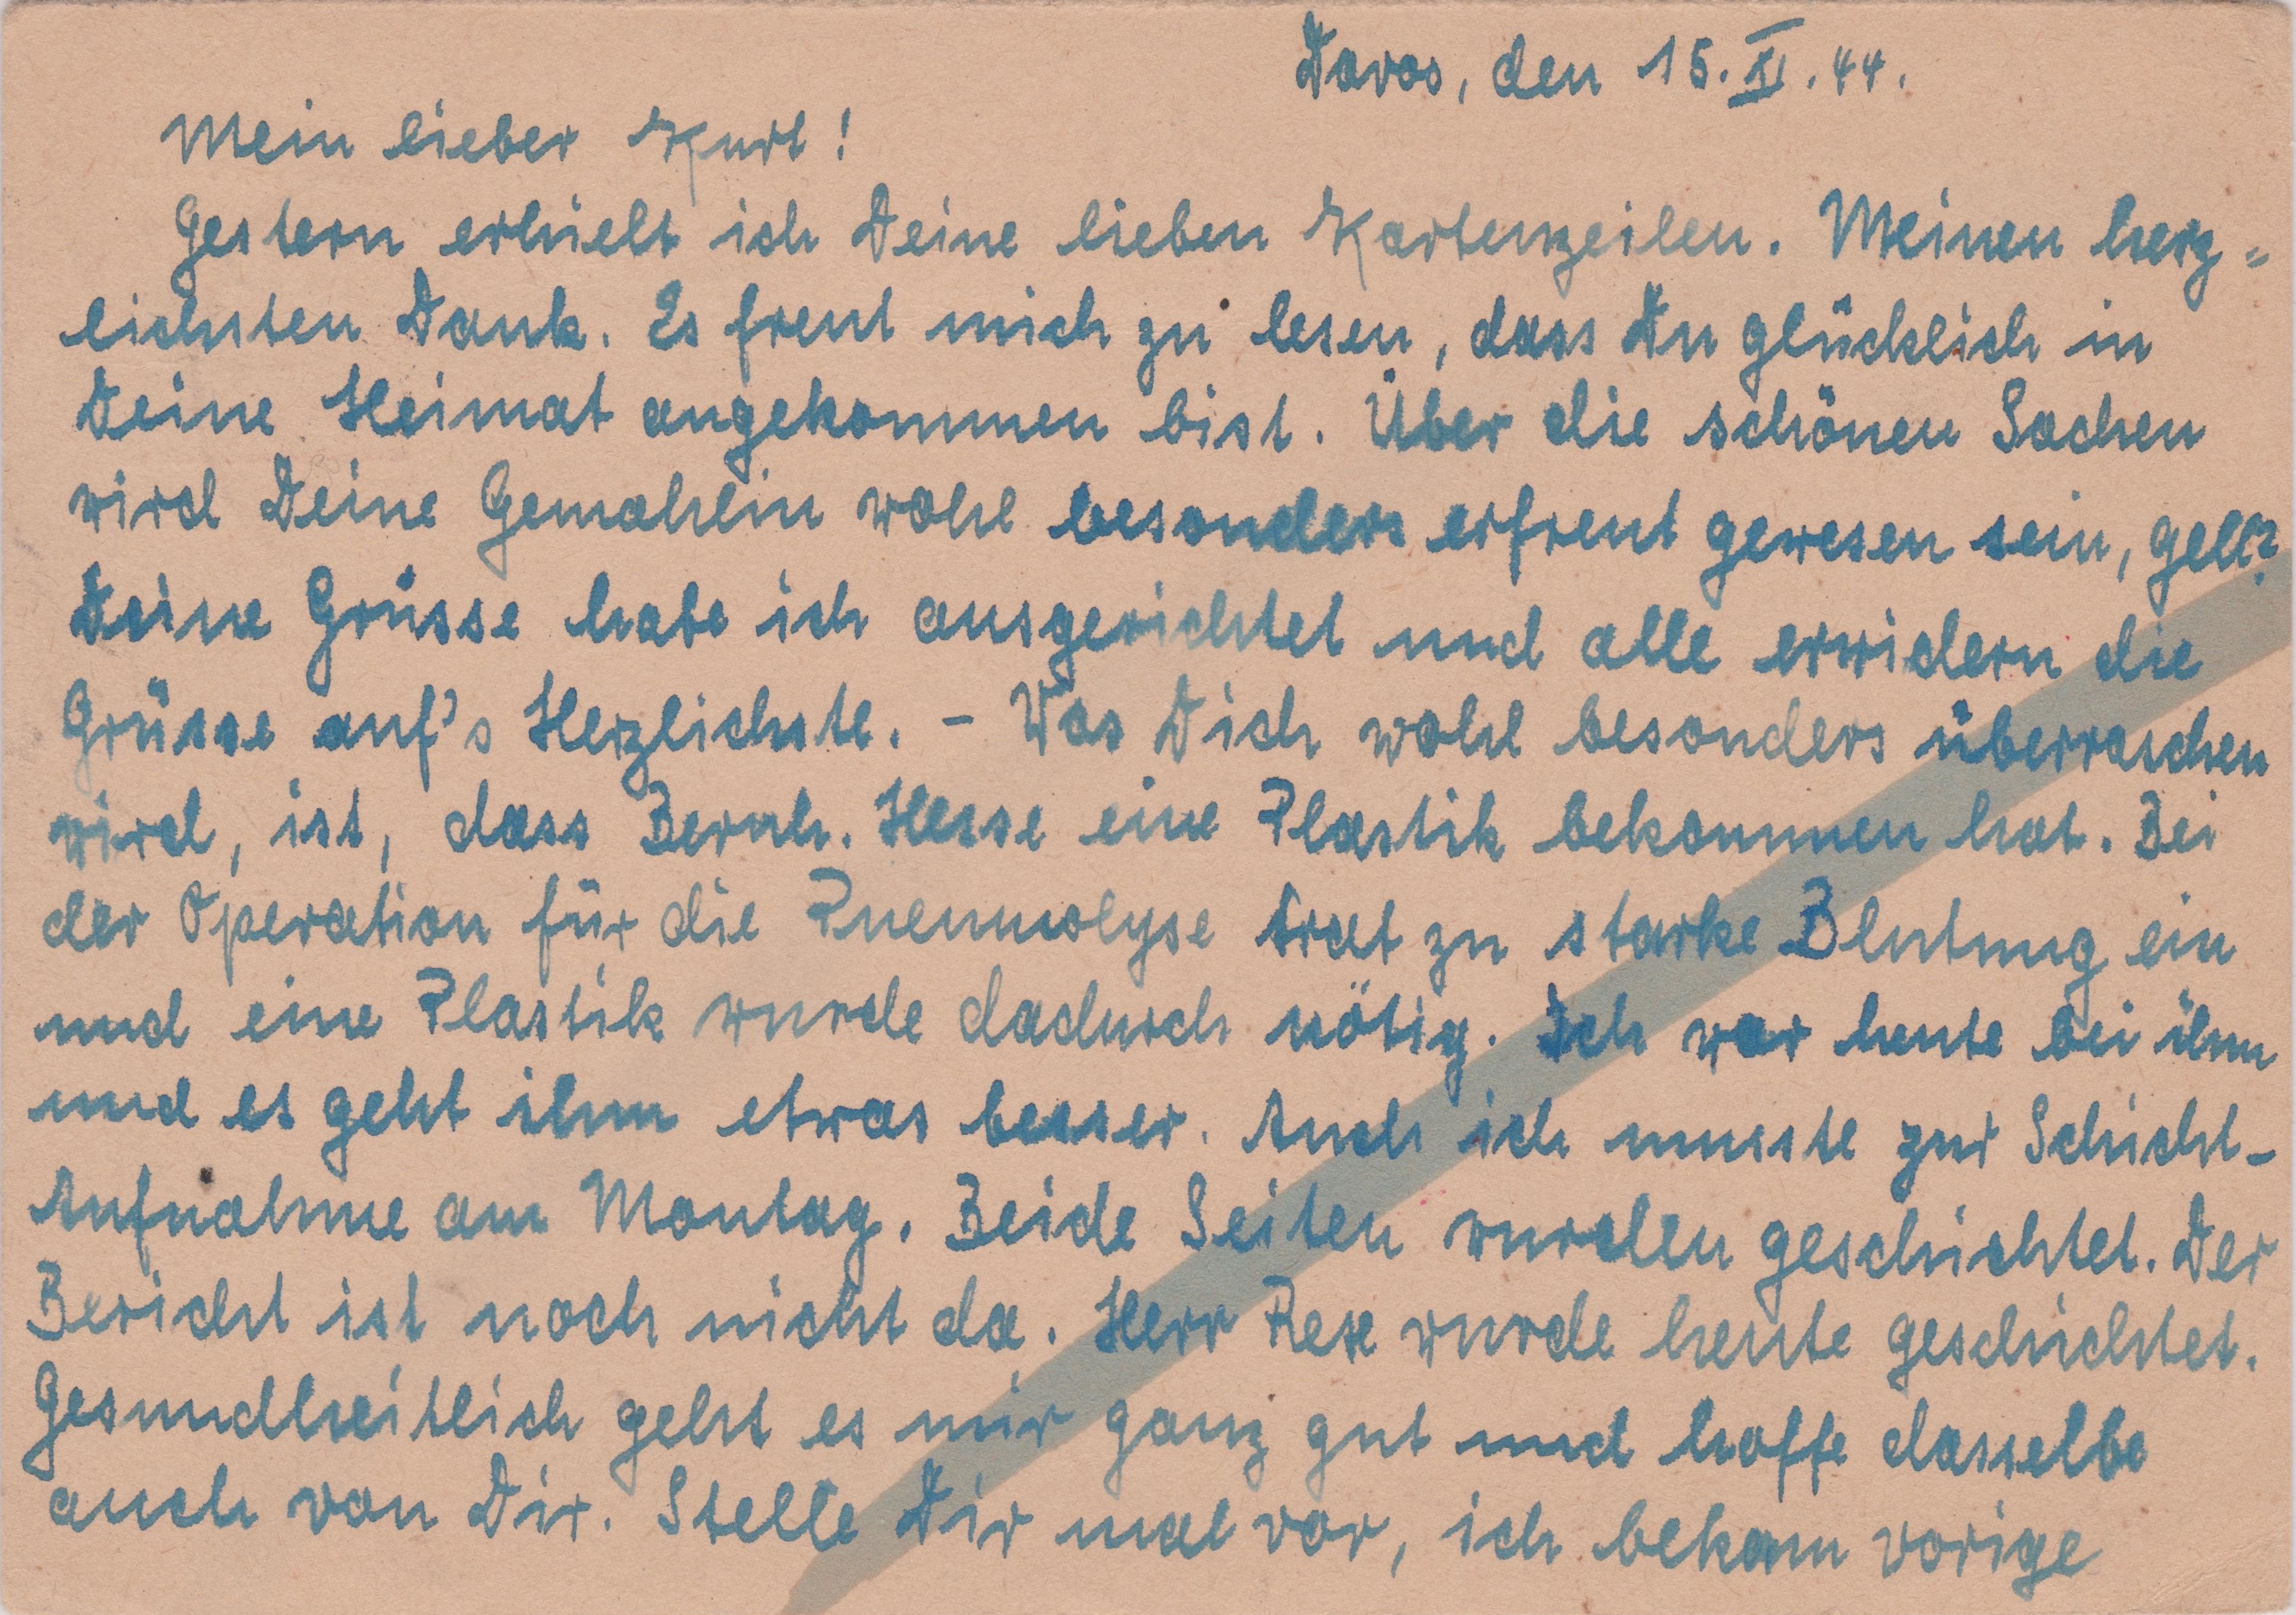 Davos, den 15. XI. 44.
Mein lieber Kurt!
Gestern erhielt ich Deine lieben Kartenzeilen. Meinen herz=
lichsten Dank. Es freut mich zu lesen, dass Du glücklich in
Deine Heimat angekommen bist. Über die schönen Sachen
wird Deine Gemahlin wohl besonders erfreut gewesen sein, gell?
Deine Grüsse habe ich ausgerichtet und alle erwidern die
Grüsse auf's Herzlichste. – Was Dich wohl besonders überraschen
wird, ist, dass Bernh. Hesse eine Plastik bekommen hat. Bei
der Operation für die Pneumolyse trat zu starke Blutung ein
und eine Plastik wurde dadurch nötig. Ich war heute bei ihm
und es geht ihm etwas besser. Auch ich musste zur Schicht-
Aufnahme am Montag. Beide Seiten wurden geschichtet. Der
Bericht ist noch nicht da. Herr Rese wurde heute geschichtet.
Gesundheitlich geht es mir ganz gut und hoffe dasselbe
auch von Dir. Stelle Dir mal vor, ich bekam vorige